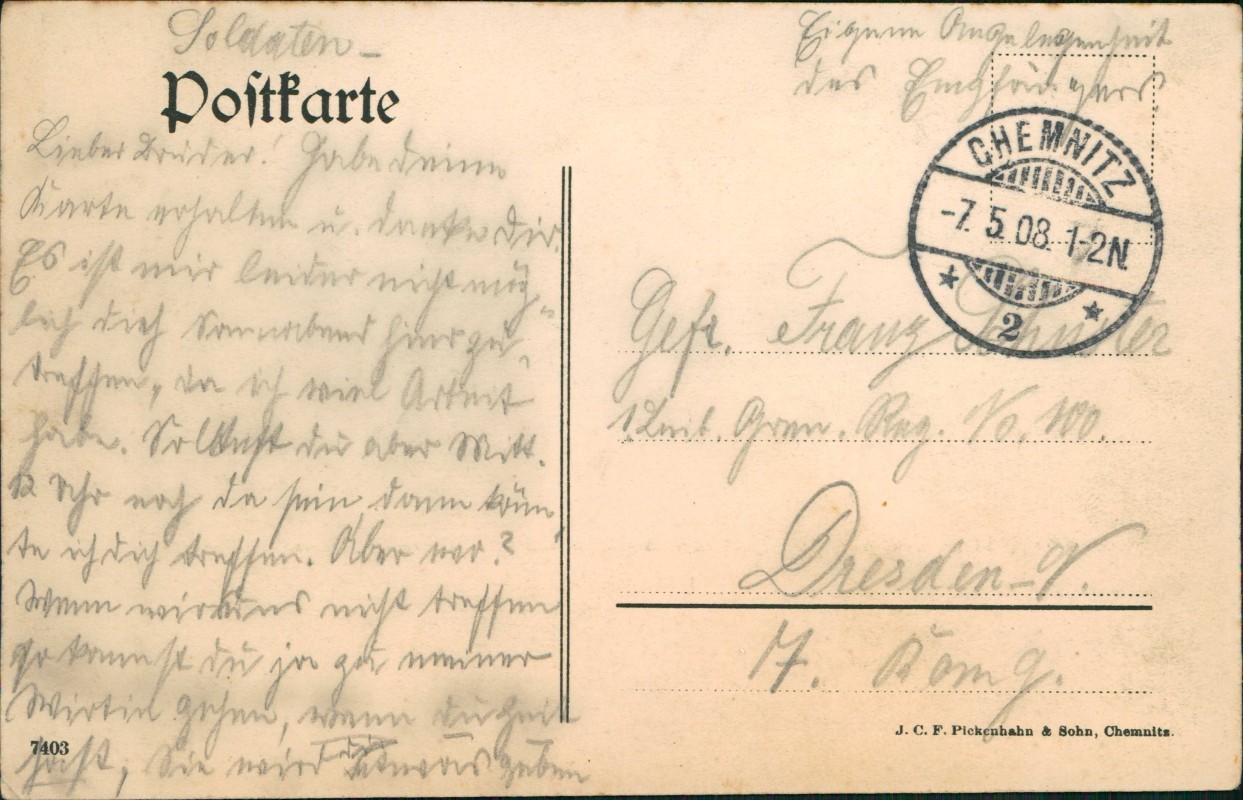 Soldaten-
Postkarte
Eigene Angelegenheit
des Empfängers.
CHEMNITZ
-7. 5. 08. 1-2N.
2
Lieber Bruder! Habe deine
Karte erhalten u. danke Dir.
Es ist mir leider nicht mög-
lich dich Sonnabend hier zu
treffen, da ich viel Arbeit
habe. Solltest du aber Mitt.
12 Uhr noch da sein, dann könn
te ich dich treffen. Aber wo?
Wenn wir uns nicht treffen
so kannst du ja zu meiner
Wirtin gehen, wenn du Zeit
hast, Sie wird dir etwas geben
Gefr. Franz Schuster
1. Leib. Gren. Reg. No. 100.
Dresden-N.
17. Komg.
7403
J. C. F. Pickenhahn & Sohn, Chemnitz.